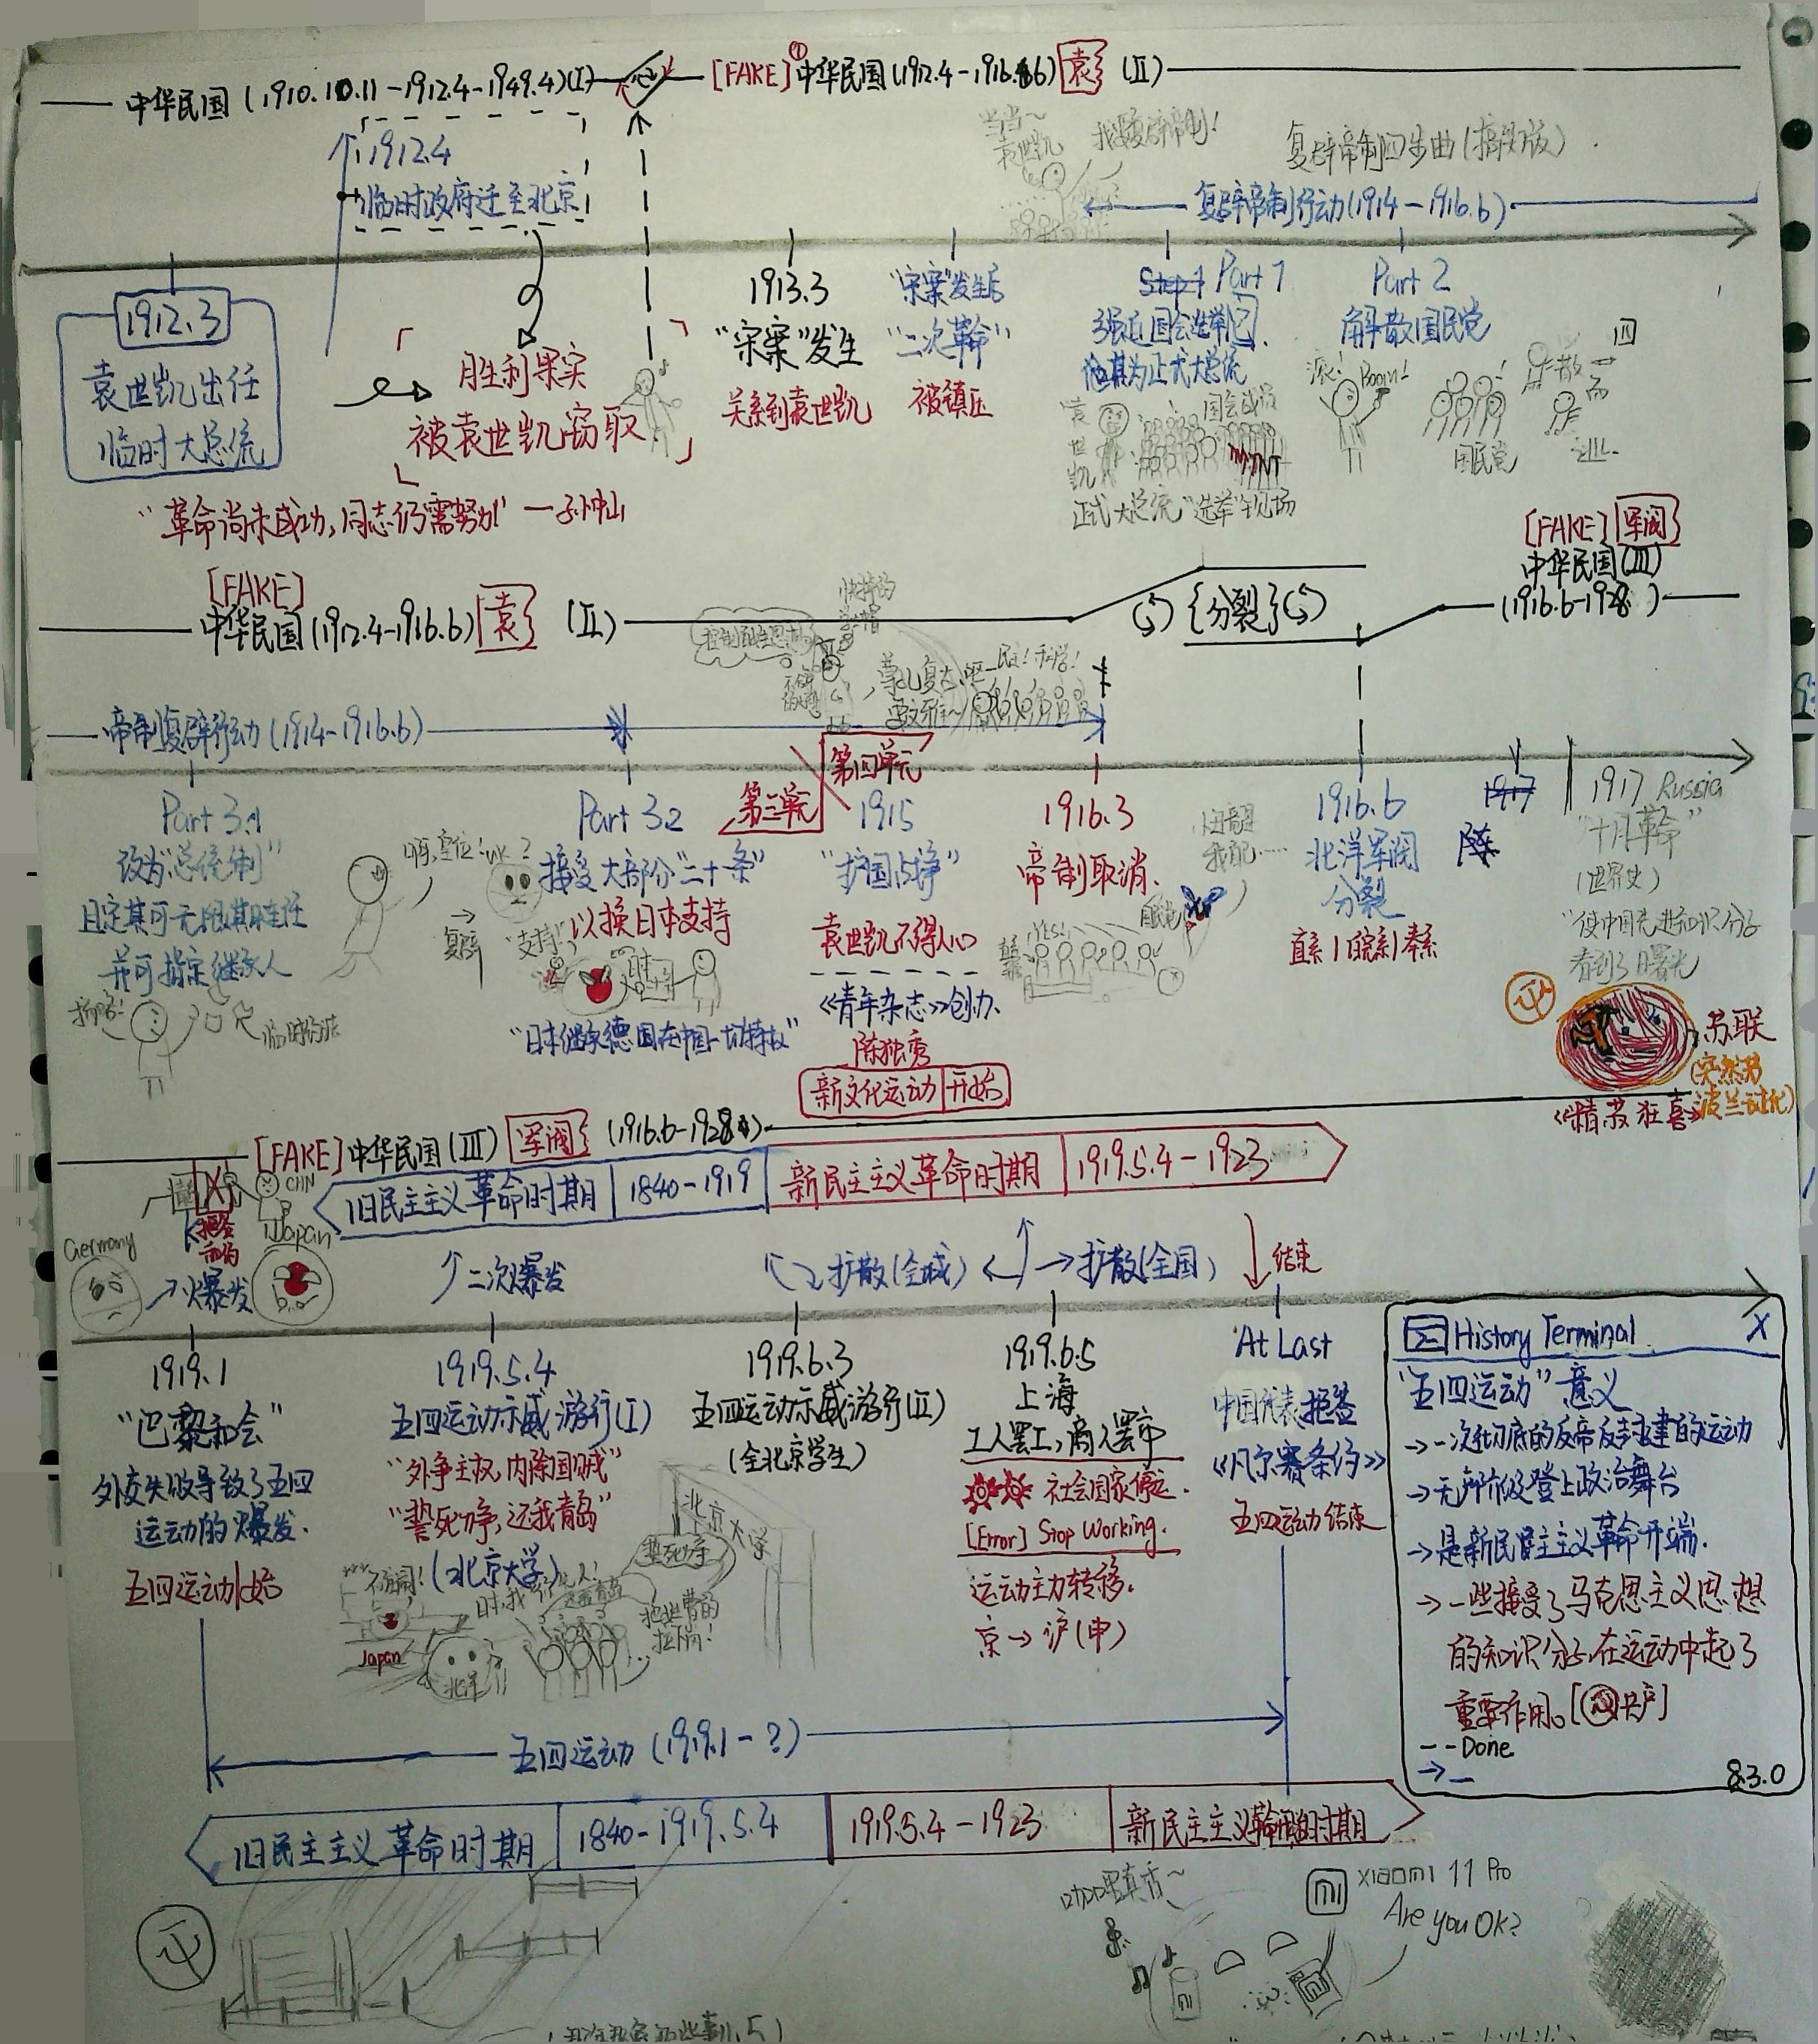 中华民国(1910.10.11-1912.4-1949.4)(I)
[FAKE]①中华民国(1912.4-1916.6)袁(II)
1912.4
临时政府迁至北京
袁世凯
复辟帝制四步曲(搞笑版)
复辟帝制行动(1914-1916.6)
1912.3
袁世凯出任
临时大总统
胜利果实
被袁世凯窃取
"革命尚未成功,同志仍需努力" —孙中山
1913.3
"宋案"发生
关系到袁世凯
"宋案"发生后
"二次革命"
被镇压
Step1 Part 1
强迫国会选举
他其为正式大总统
袁世凯
正式大总统"选举"现场
Part 2
解散国民党
滚!
Boom!
国民党
四散而逃
[FAKE]
中华民国(1912.4-1916.6)袁 (II)
{分裂}
[FAKE]军阀
中华民国(III)
(1916.6-1928)
尊孔复古
民主!科学!
帝制复辟行动(1914-1916.6)
第三单元
第四单元
Part 3.1
改为"总统制"
且定其可无限期连任
并可指定继承人
临时约法
Part 3.2
接受大部分"二十一条"
以换日本支持
"支持"
复辟
"日本继承德国在中国一切特权"
1915
"护国战争"
袁世凯不得人心
《青年杂志》创办
陈独秀
新文化运动 开始
1916.3
帝制取消.
YES!
1916.6
北洋军阀
分裂
直系|皖系|奉系
1917
陈
1917 Russia
"十月革命"
(世界史)
"使中国先进知识分子
看到了曙光
苏联
《精苏狂喜》
[FAKE]中华民国(III) 军阀 (1916.6-1928)
旧民主主义革命时期 1840-1919 新民主主义革命时期 1919.5.4-1923
Germany
CHN
拒签和约
Japan
爆发
二次爆发
扩散(全城)
扩散(全国)
结束
1919.1
"巴黎和会"
外交失败导致了五四
运动的爆发.
五四运动开始
1919.5.4
五四运动示威游行(I)
"外争主权,内除国贼"
"誓死力争,还我青岛"
(北京大学)
北京大学
誓死力争
还我青岛
Japan
北洋
1919.6.3
五四运动示威游行(II)
(全北京学生)
1919.6.5
上海
工人罢工,商人罢市
社会国家停运.
[Error] Stop Working.
运动主力转移.
京→沪(申)
At Last
中国代表拒签
《凡尔赛条约》
五四运动结束
History Terminal X
"五四运动"意义
→一次彻底的反帝反封建的运动
→无产阶级登上政治舞台
→是新民主主义革命开端.
→一些接受了马克思主义思想
的知识分子,在运动中起了
重要作用。[共产]
--Done
→_
8.3.0
五四运动(1919.1-?)
旧民主主义革命时期 1840-1919.5.4 1919.5.4-1923 新民主主义革命时期
咖喱真香~
mi
xiaomi 11 Pro
Are you OK?